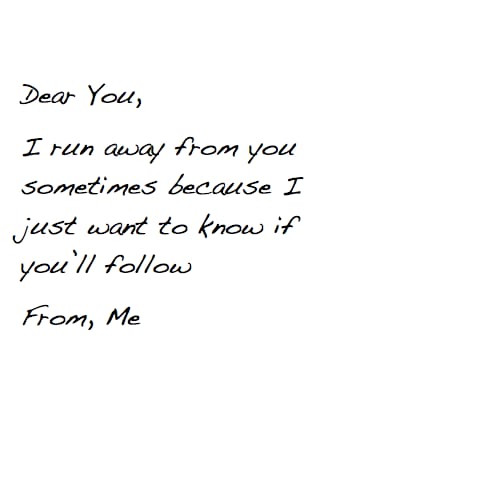 Dear You,
I run away from you
sometimes because I
just want to know if
you'll follow
From, Me